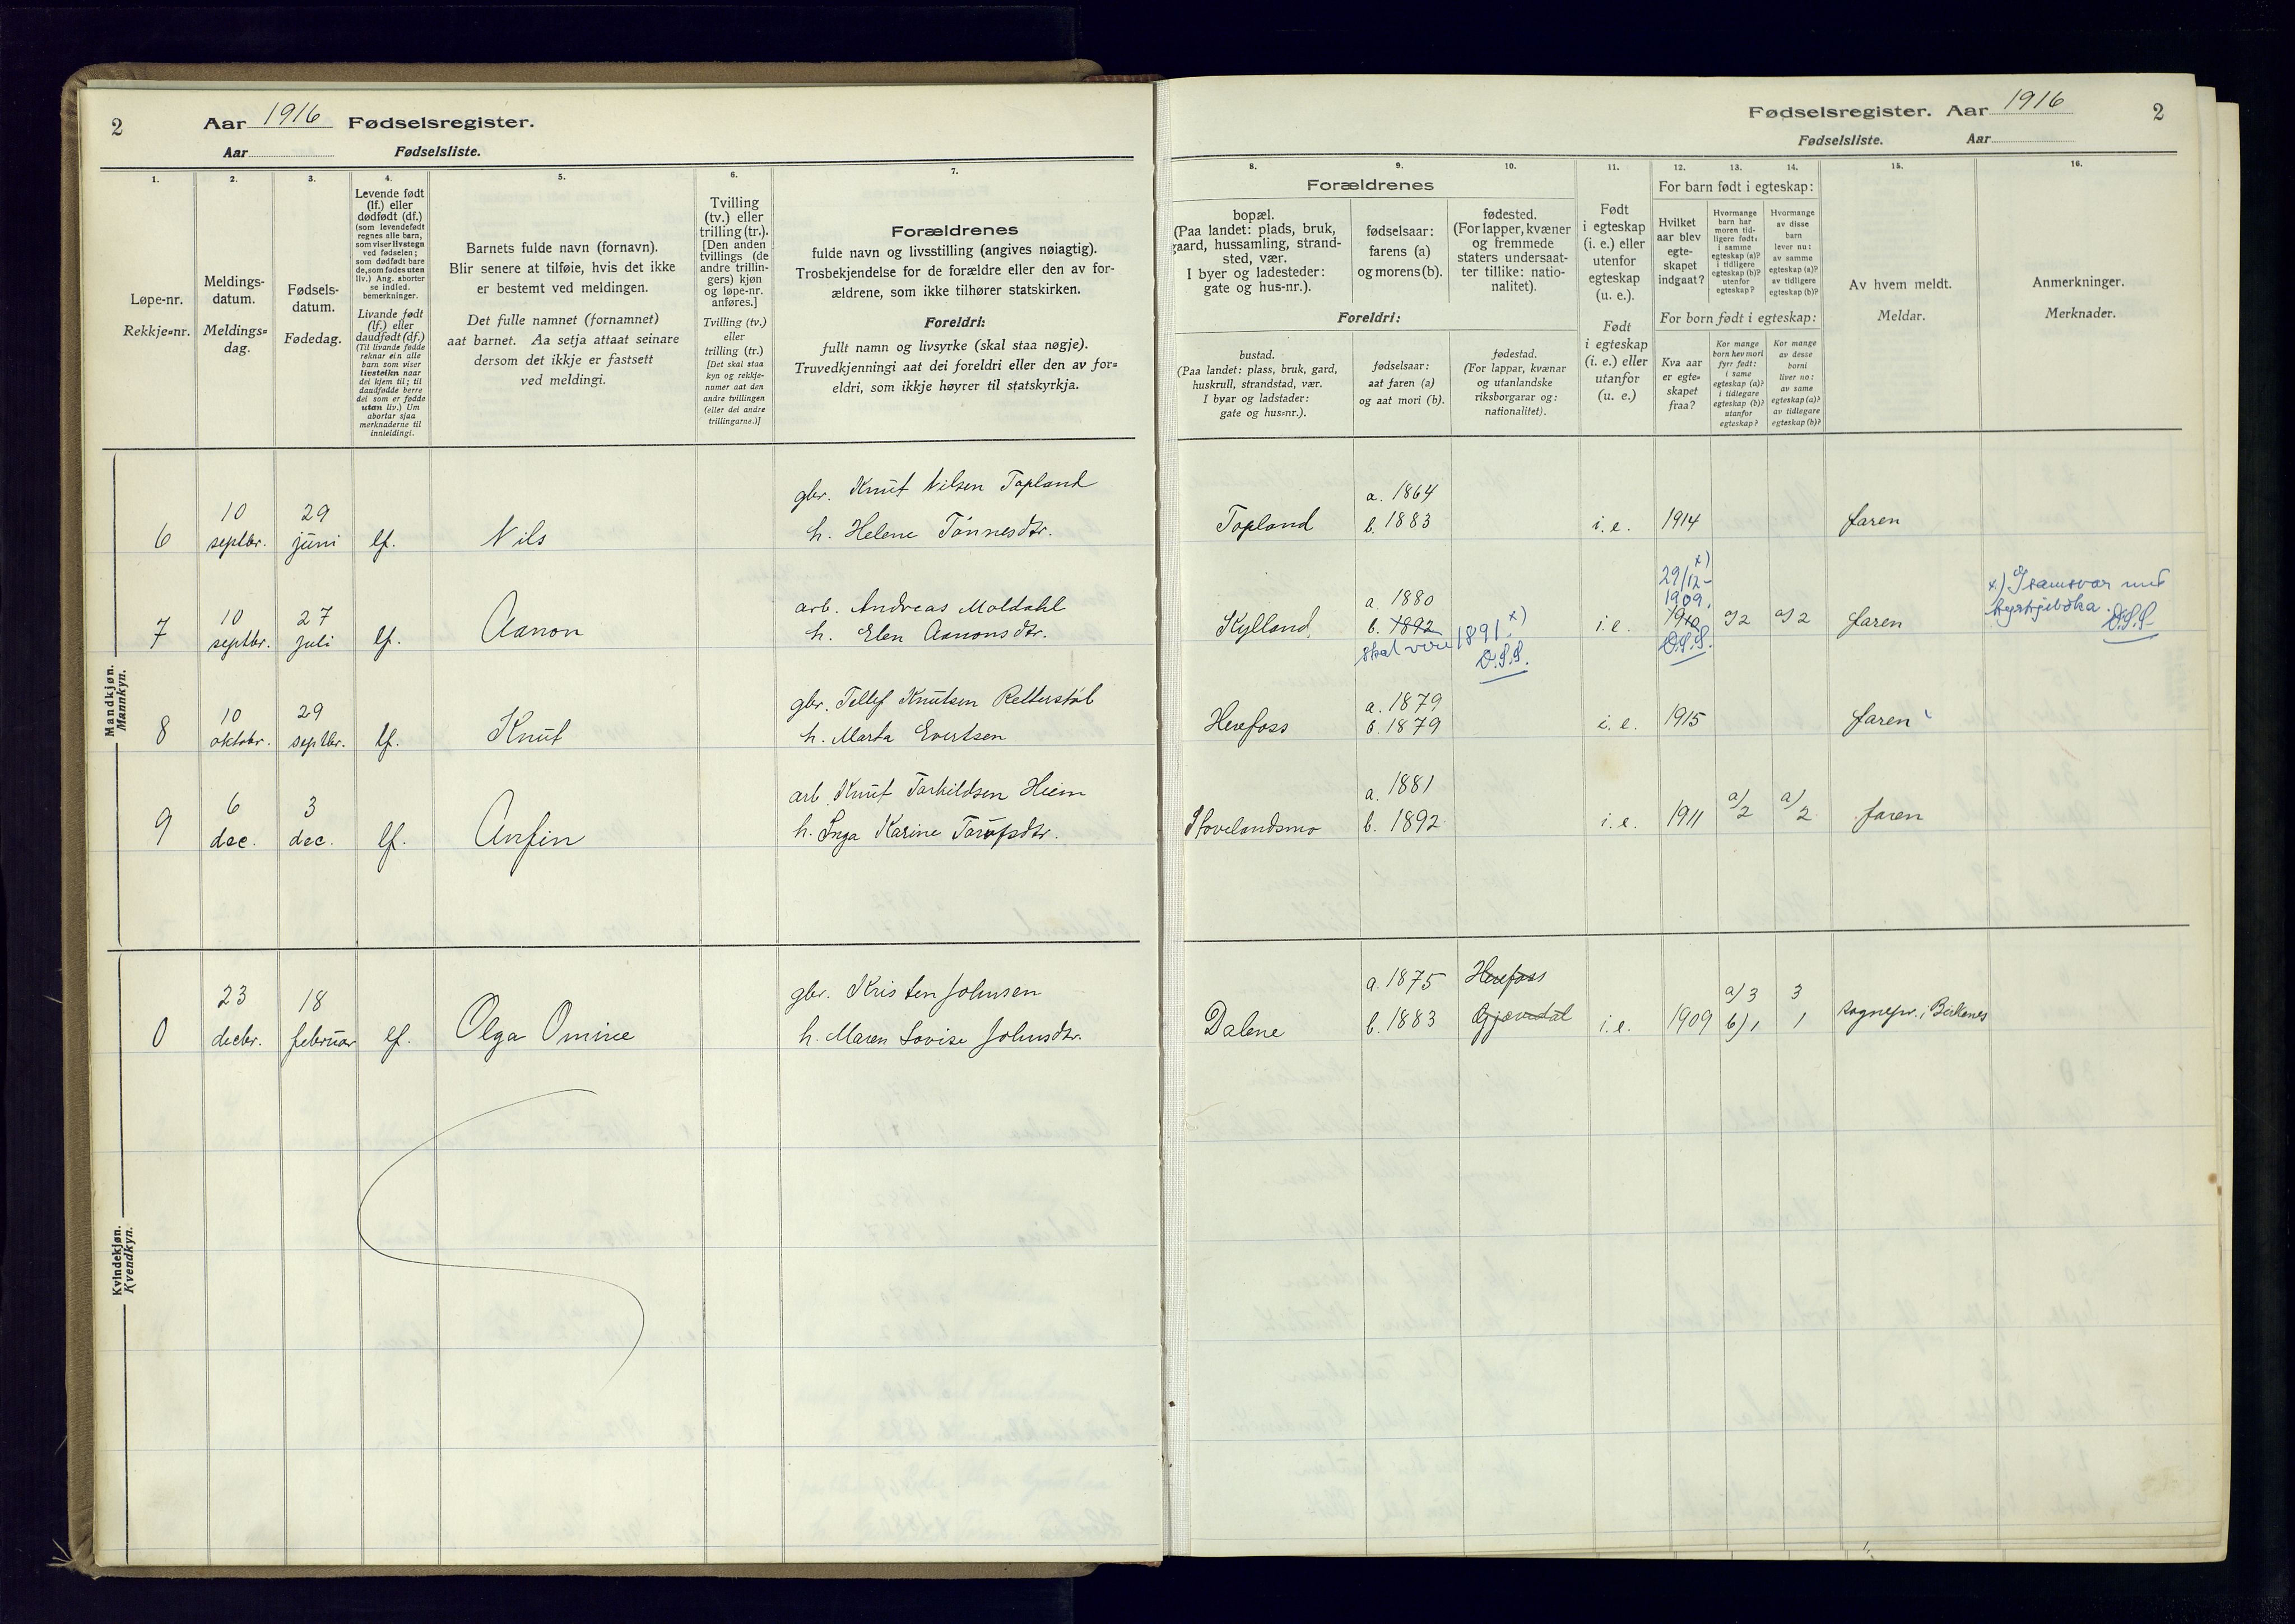 2
Aar 1916 Fødselsregister.
Aar Fødselsliste.
1.
Løpe-nr.
Rekkje=nr.
2.
Meldings-
datum.
Meldings=
dag.
3.
Fødsels-
datum.
Fødedag.
4.
Levende født
(lf.) eller
dødfødt (df.)
(som levendefødt
regnes alle barn,
som viser livstegn
ved fødselen;
som dødfødt bare
de, som fødes uten
liv.) Ang. aborter
se indled.
bemerkninger.
Livande født
(lf.) eller
daudfødt (df.)
(Til livande fødde
reknar ein alle
barn som viser
livsteikn naar
dei kjem til; til
daudfødde berre
dei som er fødde
utan liv.) Um
abortar sjaa
merknaderne til
innleidingi.
5.
Barnets fulde navn (fornavn).
Blir senere at tilføie, hvis det ikke
er bestemt ved meldingen.
Det fulle namnet (fornamnet)
aat barnet. Aa setja attaat seinare
dersom det ikkje er fastsett
ved meldingi.
6.
Tvilling
(tv.) eller
trilling (tr.).
[Den anden
tvillings (de
andre trillin-
gers) kjøn
og løpe-nr.
anføres.]
Tvilling (tv.)
eller
trilling (tr.)
[Det skal staa
kyn og rekkje-
numer aat den
andre tvillingen
(eller dei andre
trillingarne.)]
7.
Forældrenes
fulde navn og livsstilling (angives nøiagtig).
Trosbekjendelse for de forældre eller den av for-
ældrene, som ikke tilhører statskirken.
Foreldri:
fullt namn og livsyrke (skal staa nøgje).
Truvedkjenningi aat dei foreldri eller den av for=
eldri, som ikkje høyrer til statskyrkja.
Mandkjøn.
Mannkyn.
6 10 septbr. 29 juni lf. Nils
gbr. Knut Nilsen Topland
h. Helene Tønnesdtr.
7 10 septbr. 27 juli lf. Aanon
arb. Andreas Moldahl
h. Elen Aanonsdtr.
8 10 oktobr. 29 septbr. lf. Knut
gbr. Tellef Knutsen Retterstøl
h. Marta Evertsen
9 6 dec. 3 dec. lf. Anfin
arb. Knut Tarkildsen Heim
h. Inga Karine
Kvindekjøn.
Kvendkyn.
0 23 decbr. 18 februar lf. Olga Omine
gbr. Kristen Johnsen
h. Maren Lovise Johnsdtr.
Fødselsregister. Aar 1916 2
Fødselsliste. Aar
Forældrenes
8.
bopæl.
(Paa landet: plads, bruk,
gaard, hussamling, strand-
sted, vær.
I byer og ladesteder:
gate og hus-nr.).
9.
fødselsaar:
farens (a)
og morens (b).
10.
fødested.
(For lapper, kvæner
og fremmede
staters undersaat-
ter tillike: natio-
nalitet).
Foreldri:
bustad.
(Paa landet: plass, bruk, gard,
huskrull, strandstad, vær.
I byar og ladstader:
gate og hus=nr.).
fødselsaar:
aat faren (a)
og aat mori (b).
fødestad.
(For lappar, kvænar
og utanlandske
riksborgarar og:
nationalitet).
11.
Født
i egteskap
(i. e.) eller
utenfor
egteskap
(u. e.).
Født
i egteskap
(i. e.) eller
utanfor
(u. e.)
12. 13. 14.
For barn født i egteskap:
Hvilket
aar blev
egte-
skapet
indgaat?
Hvormange
barn har
moren tid-
ligere født:
i samme
egteskap (a)?
i tidligere
egteskap (b)?
utenfor
egteskap?
Hvormange
av disse
barn
lever nu:
av samme
egteskap (a)?
av tidligere
egteskap (b)?
For born født i egteskap:
Kva aar
er egte=
skapet
fraa?
Kor mange
born hev mori
fyrr født:
i same
egteskap (a)?
i tidlegare
egteskap (b)?
utanfor
egteskap?
Kor mange
av desse
borni
liver no:
av same
egteskap (a)?
av tidlegare
egteskap (b)?
15.
Av hvem meldt.
Meldar.
16.
Anmerkninger.
Merknader.
Topland a. 1864
b. 1883 i. e. 1914 faren
Kylland. a. 1880
b. 1892 i. e. 1910 a/2 a/2 faren
skal være 1891. x)
O.S.S.
29/12- x)
1909.
O.S.S.
x) I samsvar med
kyrkjeboka.
O.S.S.
Herefoss a. 1879
b. 1879 i. e. 1915 faren
Hovelandsmo a. 1881
b. 1892 i. e. 1911 a/2 a/2 faren
Dalene a. 1875 Herefoss
b. 1883 Gjøvdal i. e. 1909 a/3 3
b/1 1
sognepr. i Birkenes